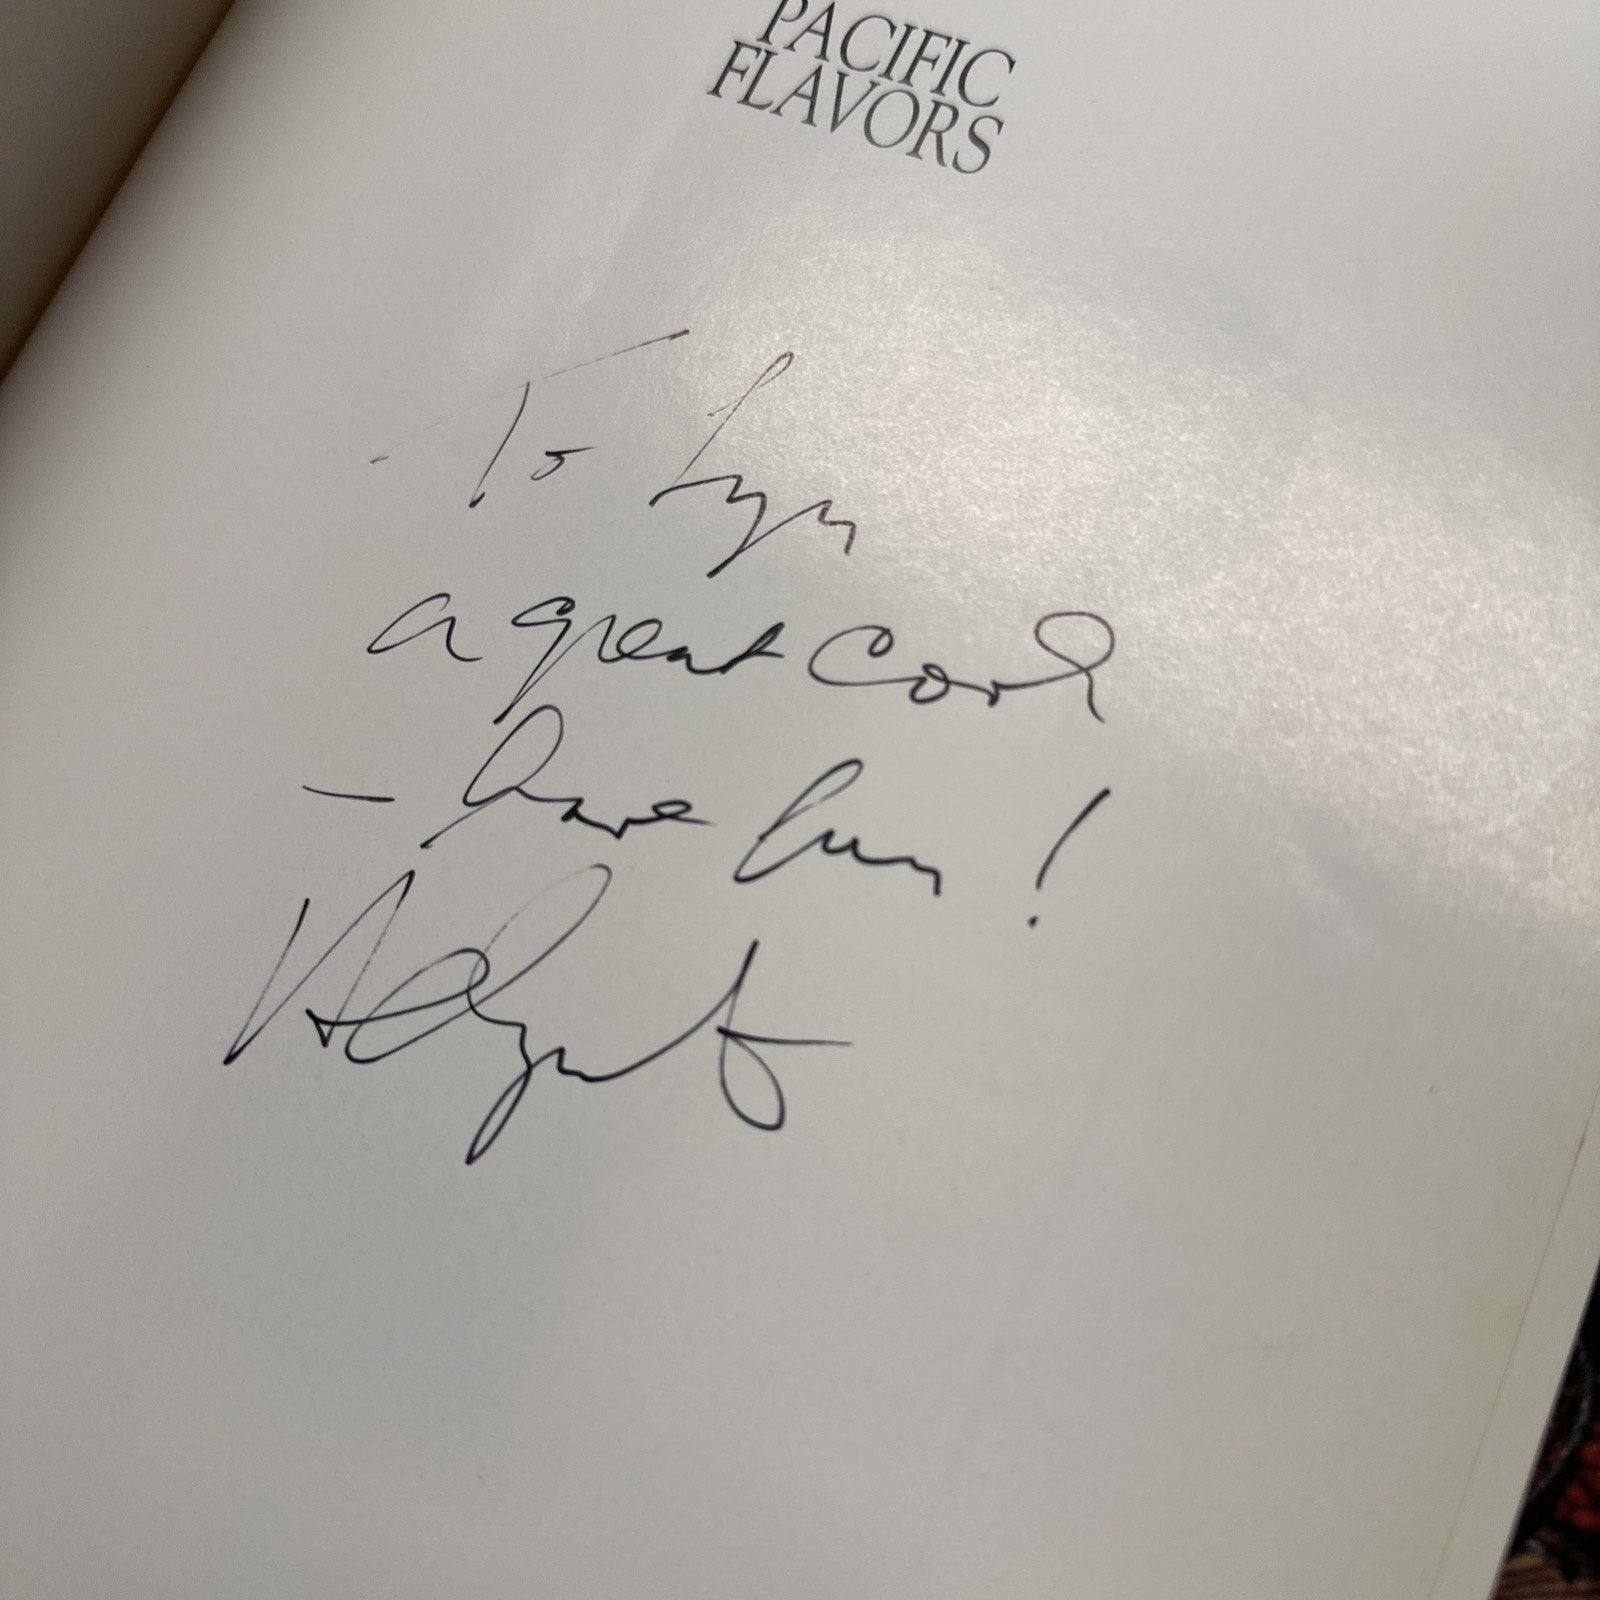 PACIFIC
FLAVORS
To Lyn
a great cook
- have fun!